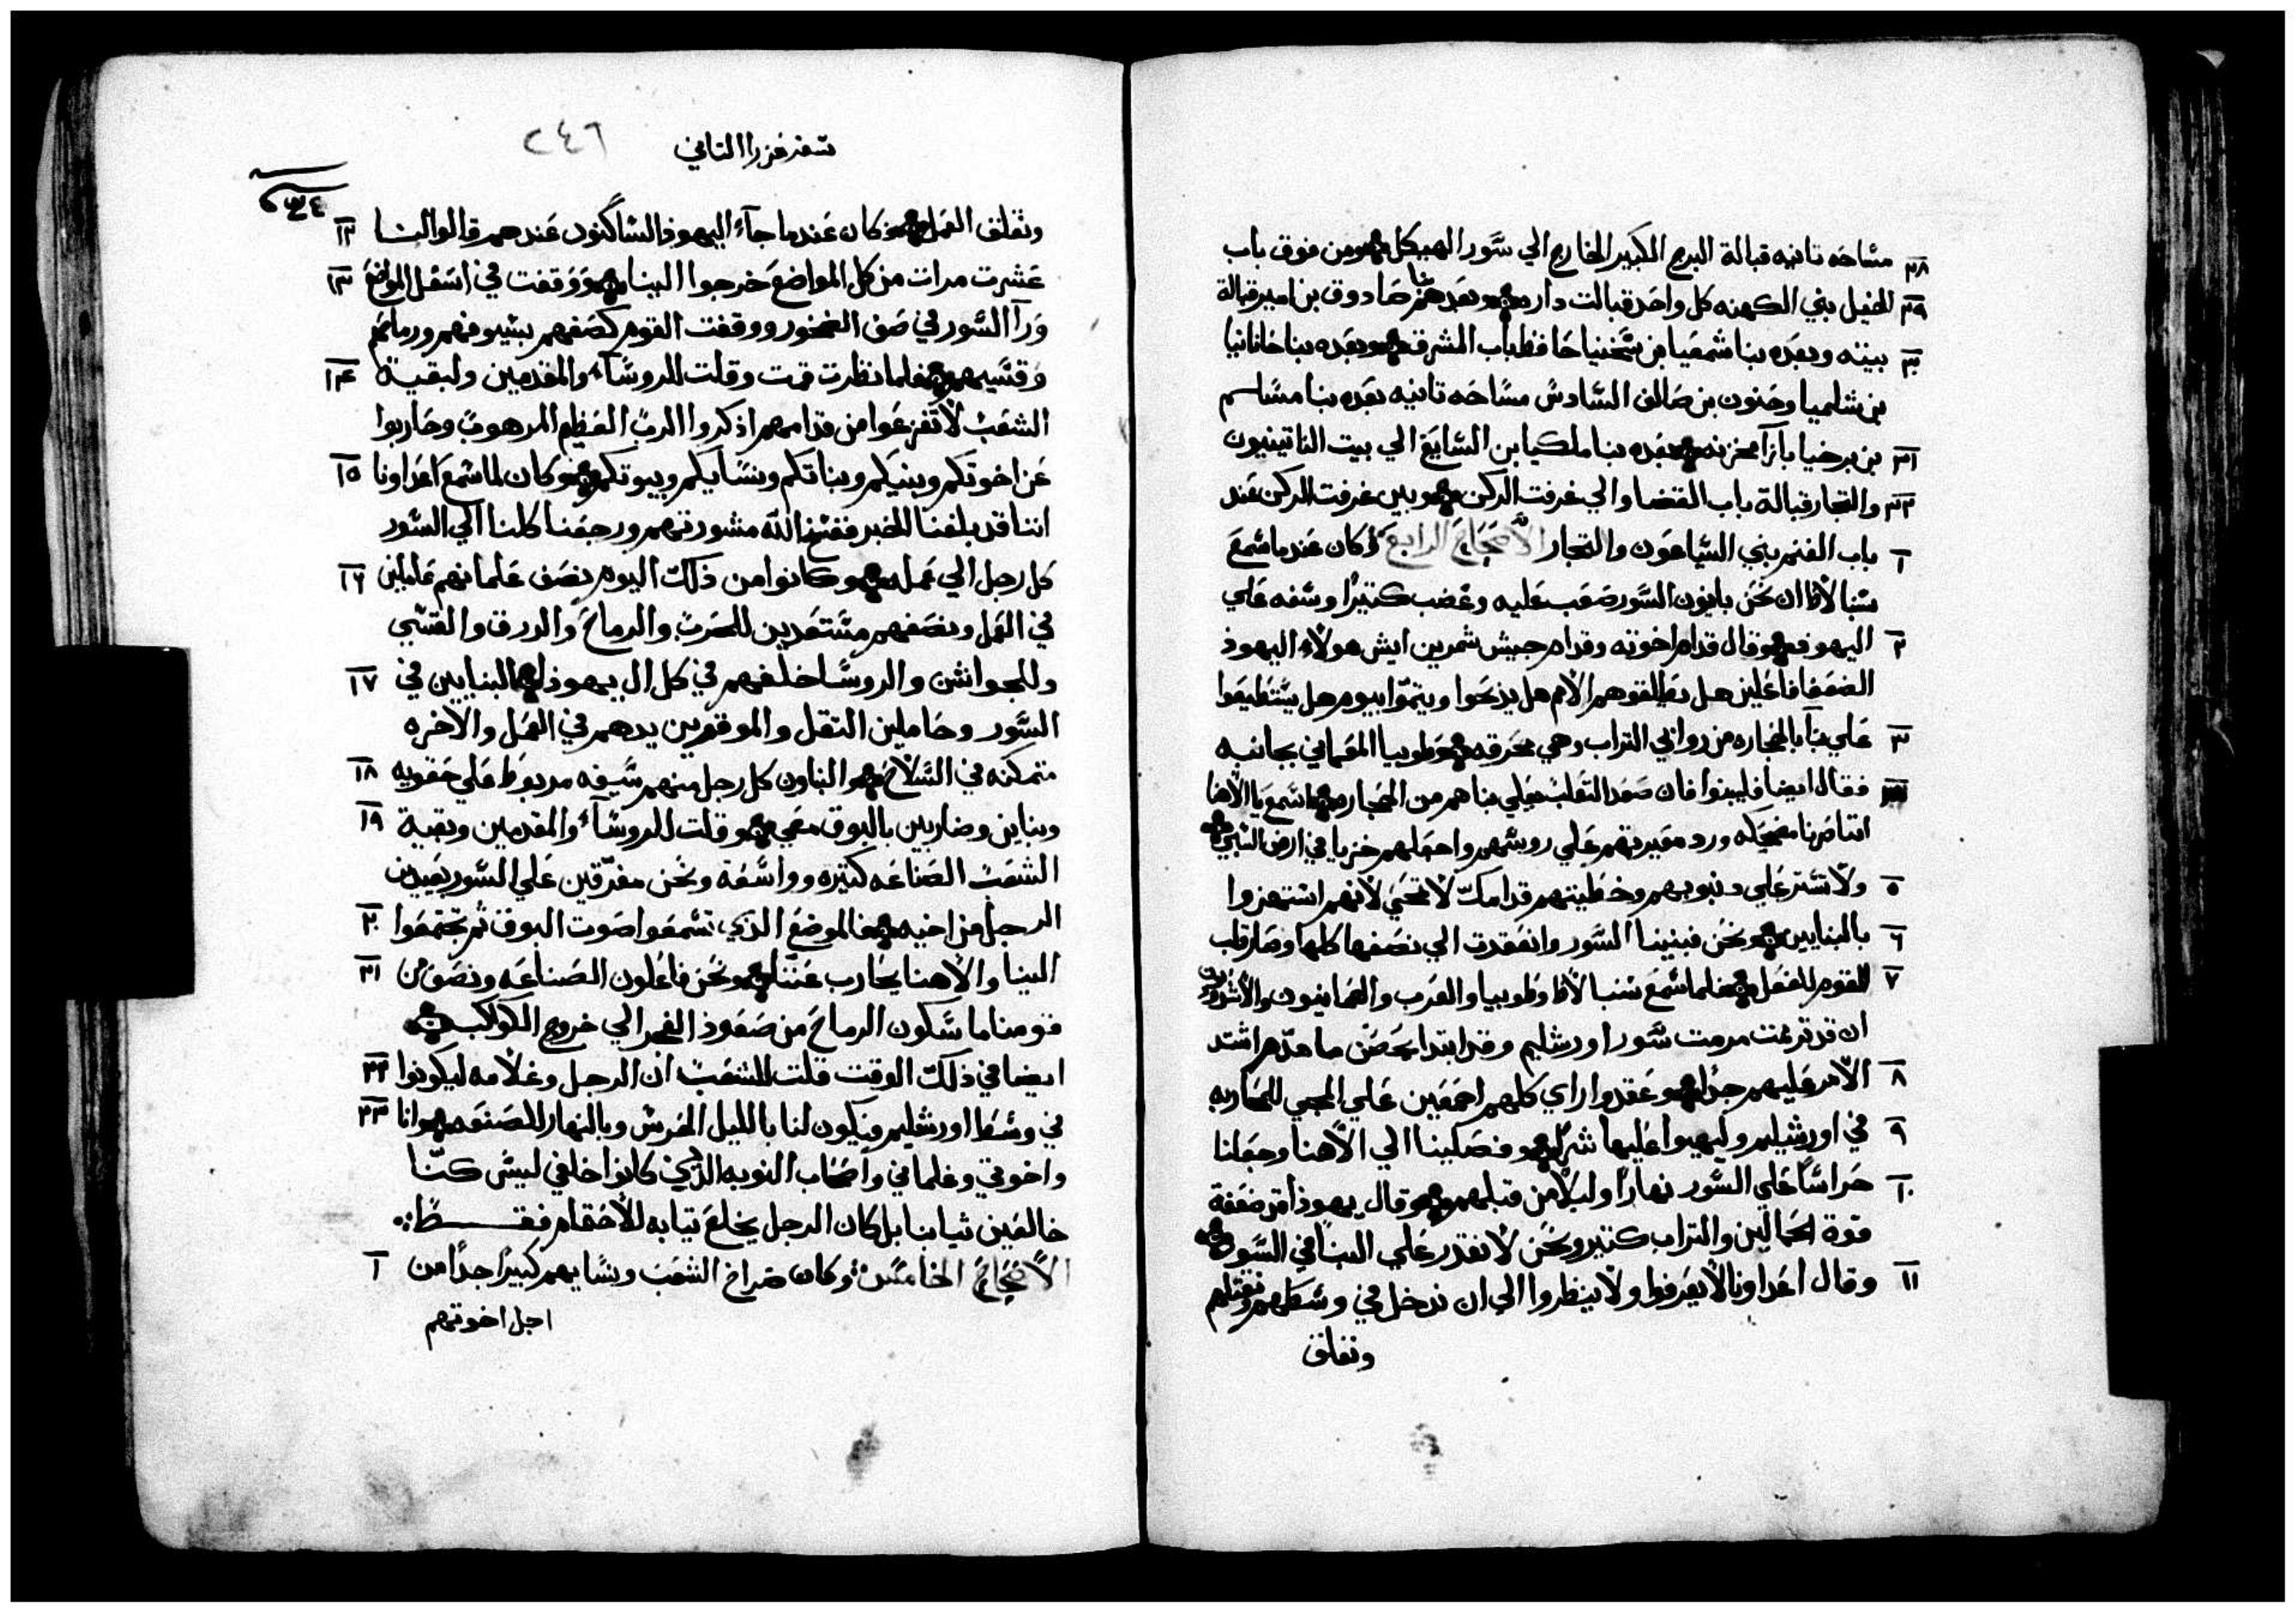 مساحه تانيه قبالة البرج الكبير الخارج الي سور الهيكل ومن فوق باب
٢٨
الخيل بني الكهنه كل واحد قبالت داره وبعدهم بنا صادوق بن امير قبالة
٢٩
بيته وبعده بنا شمعيا بن شخنيا حافظ باب المشرق وبعده بنا حانانيا
٣٠
بن شلميا وحنون بن صالف السادس مساحه تانيه بعده بنا مسالم
بن برخيا بازآ مخزنه بعده بنا ملكيا بن السايغ الي بيت الناتينيون
٣١
والتجار قبالة باب القضا والي غرفت الركن وبين غرفت الركن عند
٣٢
باب الغنم بني السياعون والتجار الاصحاح الرابع وكان عندما سمع
١
سنبالاط ان نحن بانيون السور صعب عليه وغضب كتيرًا وسفه علي
اليهود وقال قدام اخوته وقدام جيش شمرين ايش هولاء اليهود
٢
الضعفا فاعلين هل يطلقوهم الامم هل يذبحوا ويتموا بيوم هل يستطيعوا
علي بنآ بالحجاره من روابي التراب وهي محرقه وطوبيا العماني بجانبه
٣
فقال ايضا فليبنوا فان صعد التعلب يعلي بناهم من الحجاره اسمع يا الاهنا
اننا صرنا مضحكه ورد معيرتهم علي روسهم واحملهم خزيا في ارض السبي
ولا تستر علي دنوبهم وخطيتهم قدامك لا تمحي لانهم استهزوا
٥
بالبنايين ونحن فبنينا السور وانعقدت الي نصفها كلها وصار قلب
٦
القوم للفعل فلما سمع سنبالاط وطوبيا والعرب والعمانيون والاشدوديون
٧
ان قد ترممت مرمت سور اورشليم وقد ابتدا يحصن ما هدم اشتد
الامر عليهم جدًا وعقدوا راي كلهم اجمعين علي المجي للمحاربه
٨
في اورشليم وليهيوا عليها شرًا فصلينا الي الاهنا وجعلنا
٩
حراسًا علي السور نهارًا وليلا من قبلهم وقال يهوذا قد ضعفة
١٠
قوة الحمالين والتراب كتير ونحن لا نقدر علي البنا في السور
وقال اعداونا لا يعرفوا ولا ينظروا الي ان ندخل في وسطهم ونقتلهم
١١
ونغلق
سفر عزرا التاني
٢٤٦
ونغلق العمل وكان عندما جآء اليهود الساكنون عندهم قالوا لنا
١٢
عشرت مرات من كل المواضع خرجوا الينا ووقفت في اسفل المواضع
١٣
ورآ السور في صف الصخور ووقفت القوم كصفهم بسيوفهم ورماحهم
وقسيهم فلما نظرت قمت وقلت للروسآء والمقدمين ولبقية
١٤
الشعب لا تفزعوا من قدامهم اذكروا الرب العظيم المرهوب وحاربوا
عن اخوتكم وبنيكم وبناتكم ونسايكم وبيوتكم وكان لما سمع اعداونا
١٥
اننا قد بلغنا الخبر ففسخ الله مشورتهم ورجعنا كلنا الي السور
كل رجل الي عمله وكانوا من ذلك اليوم نصف غلمانهم عاملين
١٦
في العمل ونصفهم مستعدين للحرب والرماح والدرق والقسي
والجواشن والروسا خلفهم في كل ال يهوذا البنايين في
١٧
السور وحاملين التقل والموقرين يدهم في العمل والاخره
متمكنه في السلاح والبناون كل رجل منهم سيفه مربوط علي حقويه
١٨
وبناين وضاربين بالبوق معي وقلت للروسآء والمقدمين وبقية
١٩
الشعب الصناعه كتيره وواسعة ونحن مفرقين علي السور بعيدين
الرجل من اخيه فالموضع الذي تسمعوا صوت البوق تم تجتمعوا
٢٠
الينا والاهنا يحارب عننا ونحن فاعلون الصناعه ونصف من
٢١
قومنا ماسكون الرماح من صعود الفجر الي خروج الكواكب
ايضا في ذلك الوقت قلت للشعب ان الرجل وغلامه ليكونوا
٢٢
في وسط اورشليم ويكون لنا بالليل الحرس وبالنهار للصنعه وانا
٢٣
واخوتي وغلماني واصحاب النوبه الذي كانوا خلفي ليس كنا
خالعين ثيابنا بل كان الرجل يخلع تيابه للاحمام فقط
الاصحاح الخامس وكان صراخ الشعب ونسايهم كبيرًا جدًا من
١
اجل اخوتهم